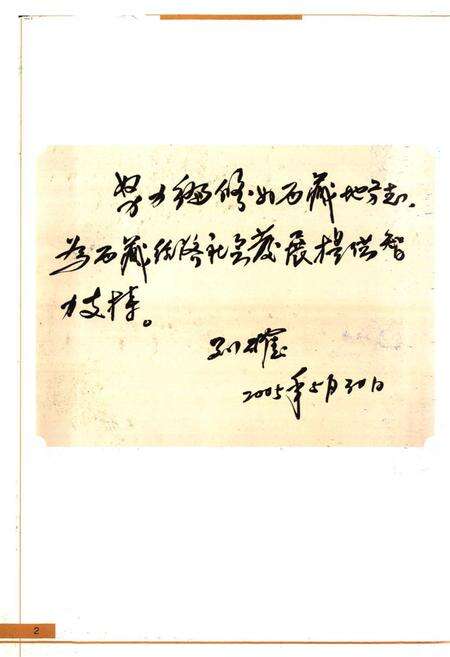 努力编修好西藏地方志，
为西藏经济社会发展提供智
力支持。
2005年5月30日
2